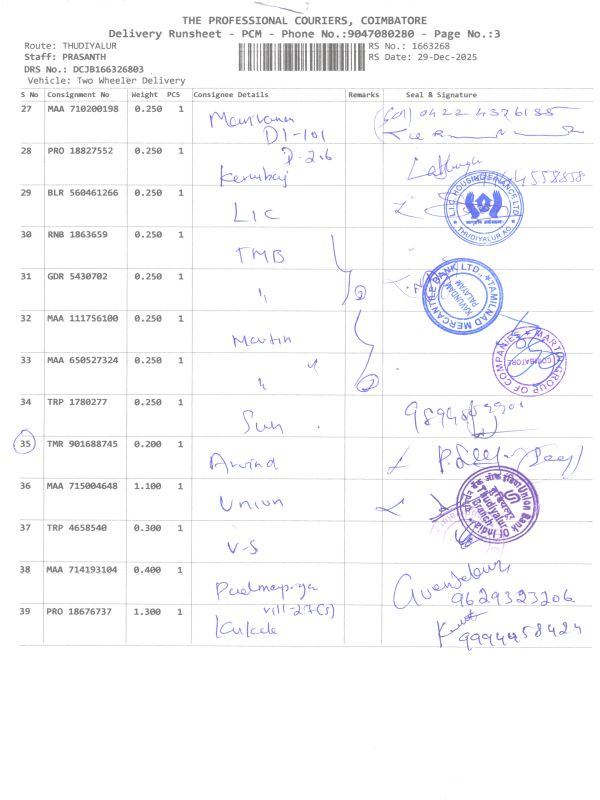 THE PROFESSIONAL COURIERS, COIMBATORE
Delivery Runsheet - PCM - Phone No.:9047080280 - Page No.:3
Route: THUDIYALUR
RS No.: 1663268
Staff: PRASANTH
RS Date: 29-Dec-2025
DRS No.: DCJB166326803
Vehicle: Two Wheeler Delivery
S No Consignment No Weight PCS Consignee Details Remarks Seal & Signature
27 MAA 710200198 0.250 1 0422 4376188
D1-101
28 PRO 18827552 0.250 1 D-206
29 BLR 560461266 0.250 1 LIC
L.I.C HOUSING FINANCE LTD.
THUDIYALUR AO
30 RNB 1863659 0.250 1 TMB
31 GDR 5430702 0.250 1 " 2
TAMILNAD MERCANTILE BANK LTD.,
KAVUNDAM PALAYAM
32 MAA 111756100 0.250 1 Martin
33 MAA 650527324 0.250 1 " 2
MARTIN GROUP OF COMPANIES
COIMBATORE
34 TRP 1780277 0.250 1 Sun
35 TMR 901688745 0.200 1 Arvind
36 MAA 715004648 1.100 1 Union
Union Bank Of India
Thudiyalur Branch
37 TRP 4658540 0.300 1 V-S
38 MAA 714193104 0.400 1
9629323206
39 PRO 18676737 1.300 1 vill-27(s)
9994458424